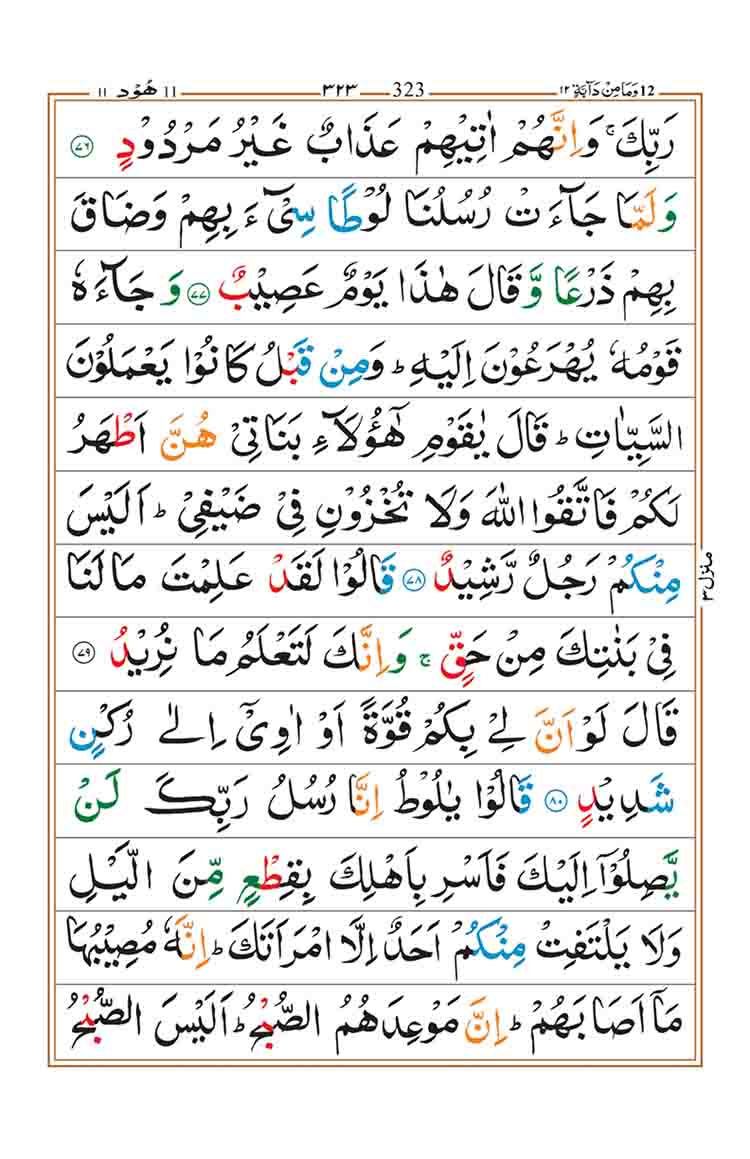 12 وَمَا مِنْ دَآبَّةٍ ١٢ 323 ٣٢٣ 11 هُوْد ١١
رَبِّكَ ۚ وَاِنَّهُمْ اٰتِيْهِمْ عَذَابٌ غَيْرُ مَرْدُوْدٍ ﴿٧٦﴾
وَلَمَّا جَآءَتْ رُسُلُنَا لُوْطًا سِيْٓءَ بِهِمْ وَضَاقَ
بِهِمْ ذَرْعًا وَّقَالَ هٰذَا يَوْمٌ عَصِيْبٌ ﴿٧٧﴾ وَجَآءَهٗ
قَوْمُهٗ يُهْرَعُوْنَ اِلَيْهِ ؕ وَمِنْ قَبْلُ كَانُوْا يَعْمَلُوْنَ
السَّيِّاٰتِ ؕ قَالَ يٰقَوْمِ هٰٓؤُلَآءِ بَنَاتِيْ هُنَّ اَطْهَرُ
لَكُمْ فَاتَّقُوا اللّٰهَ وَلَا تُخْزُوْنِ فِيْ ضَيْفِيْ ؕ اَلَيْسَ
مِنْكُمْ رَجُلٌ رَّشِيْدٌ ﴿٧٨﴾ قَالُوْا لَقَدْ عَلِمْتَ مَا لَنَا
فِيْ بَنٰتِكَ مِنْ حَقٍّ ۚ وَاِنَّكَ لَتَعْلَمُ مَا نُرِيْدُ ﴿٧٩﴾
قَالَ لَوْ اَنَّ لِيْ بِكُمْ قُوَّةً اَوْ اٰوِيْٓ اِلٰى رُكْنٍ
شَدِيْدٍ ﴿٨٠﴾ قَالُوْا يٰلُوْطُ اِنَّا رُسُلُ رَبِّكَ لَنْ
يَّصِلُوْٓا اِلَيْكَ فَاَسْرِ بِاَهْلِكَ بِقِطْعٍ مِّنَ الَّيْلِ
وَلَا يَلْتَفِتْ مِنْكُمْ اَحَدٌ اِلَّا امْرَاَتَكَ ؕ اِنَّهٗ مُصِيْبُهَا
مَآ اَصَابَهُمْ ؕ اِنَّ مَوْعِدَهُمُ الصُّبْحُ ؕ اَلَيْسَ الصُّبْحُ
منزل ٣